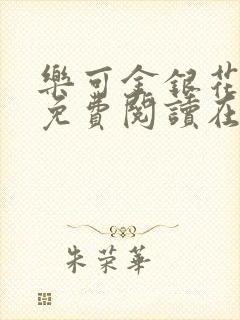 樂可金銀花
免費閱讀在
朱荣華